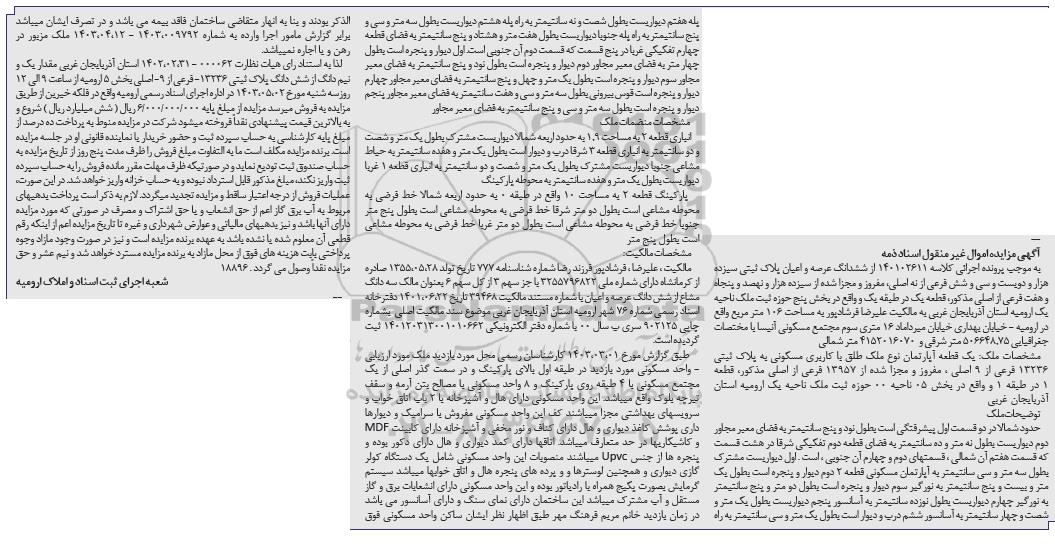 آگهی مزایده اموال غیر منقول اسناد ذمه
به موجب پرونده اجرائی کلاسه ۱۴۰۱۰۲۶۱۱ از ششدانگ عرصه و اعیان پلاک ثبتی سیزده
هزار و دویست و سی و شش فرعی از نه اصلی، مفروز و مجزا شده از سیزده هزار و نهصد و پنجاه
و هفت فرعی از اصلی مذکور، قطعه یک در طبقه یک و واقع در بخش پنج حوزه ثبت ملک ناحیه
یک ارومیه استان آذربایجان غربی به مالکیت علیرضا قرشادپور به مساحت ۱۰۶ متر مربع واقع
در ارومیه - خیابان بهداری خیابان میرداماد ۱۶ متری سوم مجتمع مسکونی آنیسا با مختصات
جغرافیایی ۵۰۶۶۴۸.۷۵ متر شرقی و ۴۱۵۲۰۱۶۰۷۰ متر شمالی
مشخصات ملک: یک قطعه آپارتمان نوع ملک طلق با کاربری مسکونی به پلاک ثبتی
۱۳۲۳۶ فرعی از ۹ اصلی ، مفروز و مجزا شده از ۱۳۹۵۷ فرعی از اصلی مذکور، قطعه
۱ در طبقه ۱ و واقع در بخش ۰۵ ناحیه ۰۰ حوزه ثبت ملک ناحیه یک ارومیه استان
آذربایجان غربی
توضیحات ملک
حدود شمالا در دو قسمت اول پیشرفتگی است بطول نود و پنج سانتیمتر به فضای معبر مجاور
دوم دیواریست بطول نه متر و ده سانتیمتر به فضای قطعه دوم تفکیکی شرقا در هشت قسمت
که قسمت هفتم آن شمالی ، قسمتهای دوم و چهارم آن جنوبی ، است . اول دیواریست مشترک
بطول سه متر و سی سانتیمتر به آپارتمان مسکونی قطعه ۲ دوم دیوار و پنجره است بطول یک
متر و بیست و پنج سانتیمتر به نورگیر سوم دیوار و پنجره است بطول دو متر و پنج سانتیمتر
به نورگیر چهارم دیواریست بطول نوزده سانتیمتر به آسانسور پنجم دیواریست بطول یک متر و
شصت و چهار سانتیمتر به آسانسور ششم درب و دیوار است بطول یک متر و سی سانتیمتر به راه
پله هفتم دیواریست بطول شصت و نه سانتیمتر به راه پله هشتم دیواریست بطول سه متر و سی و
پنج سانتیمتر به راه پله جنوبا دیواریست بطول هفت متر و هشتاد و پنج سانتیمتر به فضای قطعه
چهارم تفکیکی غربا در پنج قسمت که قسمت دوم آن جنوبی است. اول دیوار و پنجره است بطول
چهار متر به فضای معبر مجاور دوم دیوار و پنجره است بطول نود و پنج سانتیمتر به فضای معبر
مجاور سوم دیوار و پنجره است بطول یک متر و چهل و پنج سانتیمتر به فضای معبر مجاور چهارم
دیوار و پنجره است قوس بیرونی بطول سه متر و سی و هفت سانتیمتر به فضای معبر مجاور پنجم
دیوار و پنجره است بطول سه متر و سی و پنج سانتیمتر به فضای معبر مجاور
مشخصات منضمات ملک
انباری قطعه ۲ به مساحت ۱.۹ به حدود اربعه شمالا دیواریست مشترک بطول یک متر و شصت
و دو سانتیمتر به انباری قطعه ۳ شرقا درب و دیوار است بطول یک متر و هفده سانتیمتر به حیاط
مشاعی جنوبا دیواریست مشترک بطول یک متر و شصت و دو سانتیمتر به انباری قطعه ۱ غربا
دیواریست بطول یک متر و هفده سانتیمتر به محوطه پارکینگ
پارکینگ قطعه ۲ به مساحت ۱۰ واقع در طبقه ۰ به حدود اربعه شمالا خط فرضی به
محوطه مشاعی است بطول دو متر شرقا خط فرضی به محوطه مشاعی است بطول پنج متر
جنوبا خط فرضی به محوطه مشاعی است بطول دو متر غربا خط فرضی به محوطه مشاعی
است بطول پنج متر
مشخصات مالکیت:
مالکیت ، علیرضا ، قرشادپور فرزند رضا شماره شناسنامه ۷۷۷ تاریخ تولد ۱۳۵۵.۰۵.۲۸ صادره
از کرمانشاه دارای شماره ملی ۳۲۵۵۷۹۶۸۲۳ با جز سهم ۳ از کل سهم ۶ بعنوان مالک سه دانگ
مشاع از شش دانگ عرصه و اعیان با شماره مستند مالکیت ۳۹۴۶۸ تاریخ ۱۴۰۱.۰۶.۲۲ دفترخانه
اسناد رسمی شماره ۷۶ شهر ارومیه استان آذربایجان غربی موضوع سند مالکیت اصلی بشماره
چاپی ۹۰۲۱۲۵ سری ب سال ۰۰ با شماره دفتر الکترونیکی ۱۴۰۱۲۰۳۱۳۰۰۱۰۱۰۶۶۲ ثبت
گردیده است.
طبق گزارش مورخ ۱۴۰۳.۰۳.۰۱ کارشناسان رسمی محل مورد بازدید ملک مورد ارزیابی
- واحد مسکونی مورد بازدید در طبقه اول بالای پارکینگ و در سمت گذر اصلی از یک
مجتمع مسکونی با ۴ طبقه روی پارکینگ و ۸ واحد مسکونی با مصالح بتن آرمه و سقف
تیرچه بلوک واقع میباشد. این واحد مسکونی دارای هال و آشپزخانه با ۲ باب اتاق خواب و
سرویسهای بهداشتی مجزا میباشد کف این واحد مسکونی مفروش با سرامیک و دیوارها
داری پوشش کاغذ دیواری و هال دارای کناف و نور مخفی و آشپزخانه دارای کابینت MDF
و کاشیکاریها در حد متعارف میباشد اتاقها دارای کمد دیواری و هال دارای دکور بوده و
پنجره ها از جنس Upvc میباشند منصوبات این واحد مسکونی شامل یک دستگاه کولر
گازی دیواری و همچنین لوسترها و و پرده های پنجره هال و اتاق خوابها میباشد سیستم
گرمایش بصورت پکیج همراه با رادیاتور بوده و این واحد مسکونی دارای انشعابات برق و گاز
مستقل و آب مشترک میباشد این ساختمان دارای نمای سنگ و دارای آسانسور می باشد
در زمان بازدید خانم مریم فرهنگ مهر طبق اظهار نظر ایشان ساکن واحد مسکونی فوق
الذکر بودند و بنا به انهار متقاضی ساختمان فاقد بیمه می باشد و در تصرف ایشان میباشد
برابر گزارش مامور اجرا وارده به شماره ۱۴۰۳۰۰۹۷۹۲ - ۱۴۰۳.۰۴.۱۲ ملک مزبور در
رهن و یا اجاره نمیباشد.
لذا به استناد رای هیات نظارت ۰۰۰۰۶۲ - ۱۴۰۲.۰۲.۳۱ استان آذربایجان غربی مقدار یک و
نیم دانگ از شش دانگ پلاک ثبتی ۱۳۲۳۶- فرعی از ۹- اصلی بخش ۵ ارومیه از ساعت ۹ الی ۱۲
روز سه شنبه مورخ ۱۴۰۳.۰۵.۰۲ در اداره اجرای اسناد رسمی ارومیه واقع در فلکه خیرین از طریق
مزایده به فروش میرسد مزایده از مبلغ پایه ۶/۰۰۰/۰۰۰/۰۰۰ ریال ( شش میلیارد ریال ) شروع و
به بالاترین قیمت پیشنهادی نقدا فروخته میشود شرکت در مزایده منوط به پرداخت ده درصد از
مبلغ پایه کارشناسی به حساب سپرده ثبت و حضور خریدار یا نماینده قانونی او در جلسه مزایده
است. برنده مزایده مکلف است ما به التفاوت مبلغ فروش را ظرف مدت پنج روز از تاریخ مزایده به
حساب صندوق ثبت تودیع نماید و در صورتیکه ظرف مهلت مقرر مانده فروش را به حساب سپرده
ثبت واریز نکند، مبلغ مذکور قابل استرداد نبوده و به حساب خزانه واریز خواهد شد. در این صورت،
عملیات فروش از درجه اعتبار ساقط و مزایده تجدید میگردد. لازم به ذکر است پرداخت بدهیهای
مربوط به آب برق گاز اعم از حق انشعاب و یا حق اشتراک و مصرف در صورتی که مورد مزایده
دارای آنها باشد و نیز بدهیهای مالیاتی و عوارض شهرداری و غیره تا تاریخ مزایده اعم از اینکه رقم
قطعی آن معلوم شده یا نشده باشد به عهده برنده مزایده است و نیز در صورت وجود مازاد وجوه
پرداختی بابت هزینه های فوق از محل مازاد به برنده مزایده مسترد خواهد شد و نیم عشر و حق
مزایده نقدا وصول می گردد . ۱۸۸۹۶
شعبه اجرای ثبت اسناد و املاک ارومیه